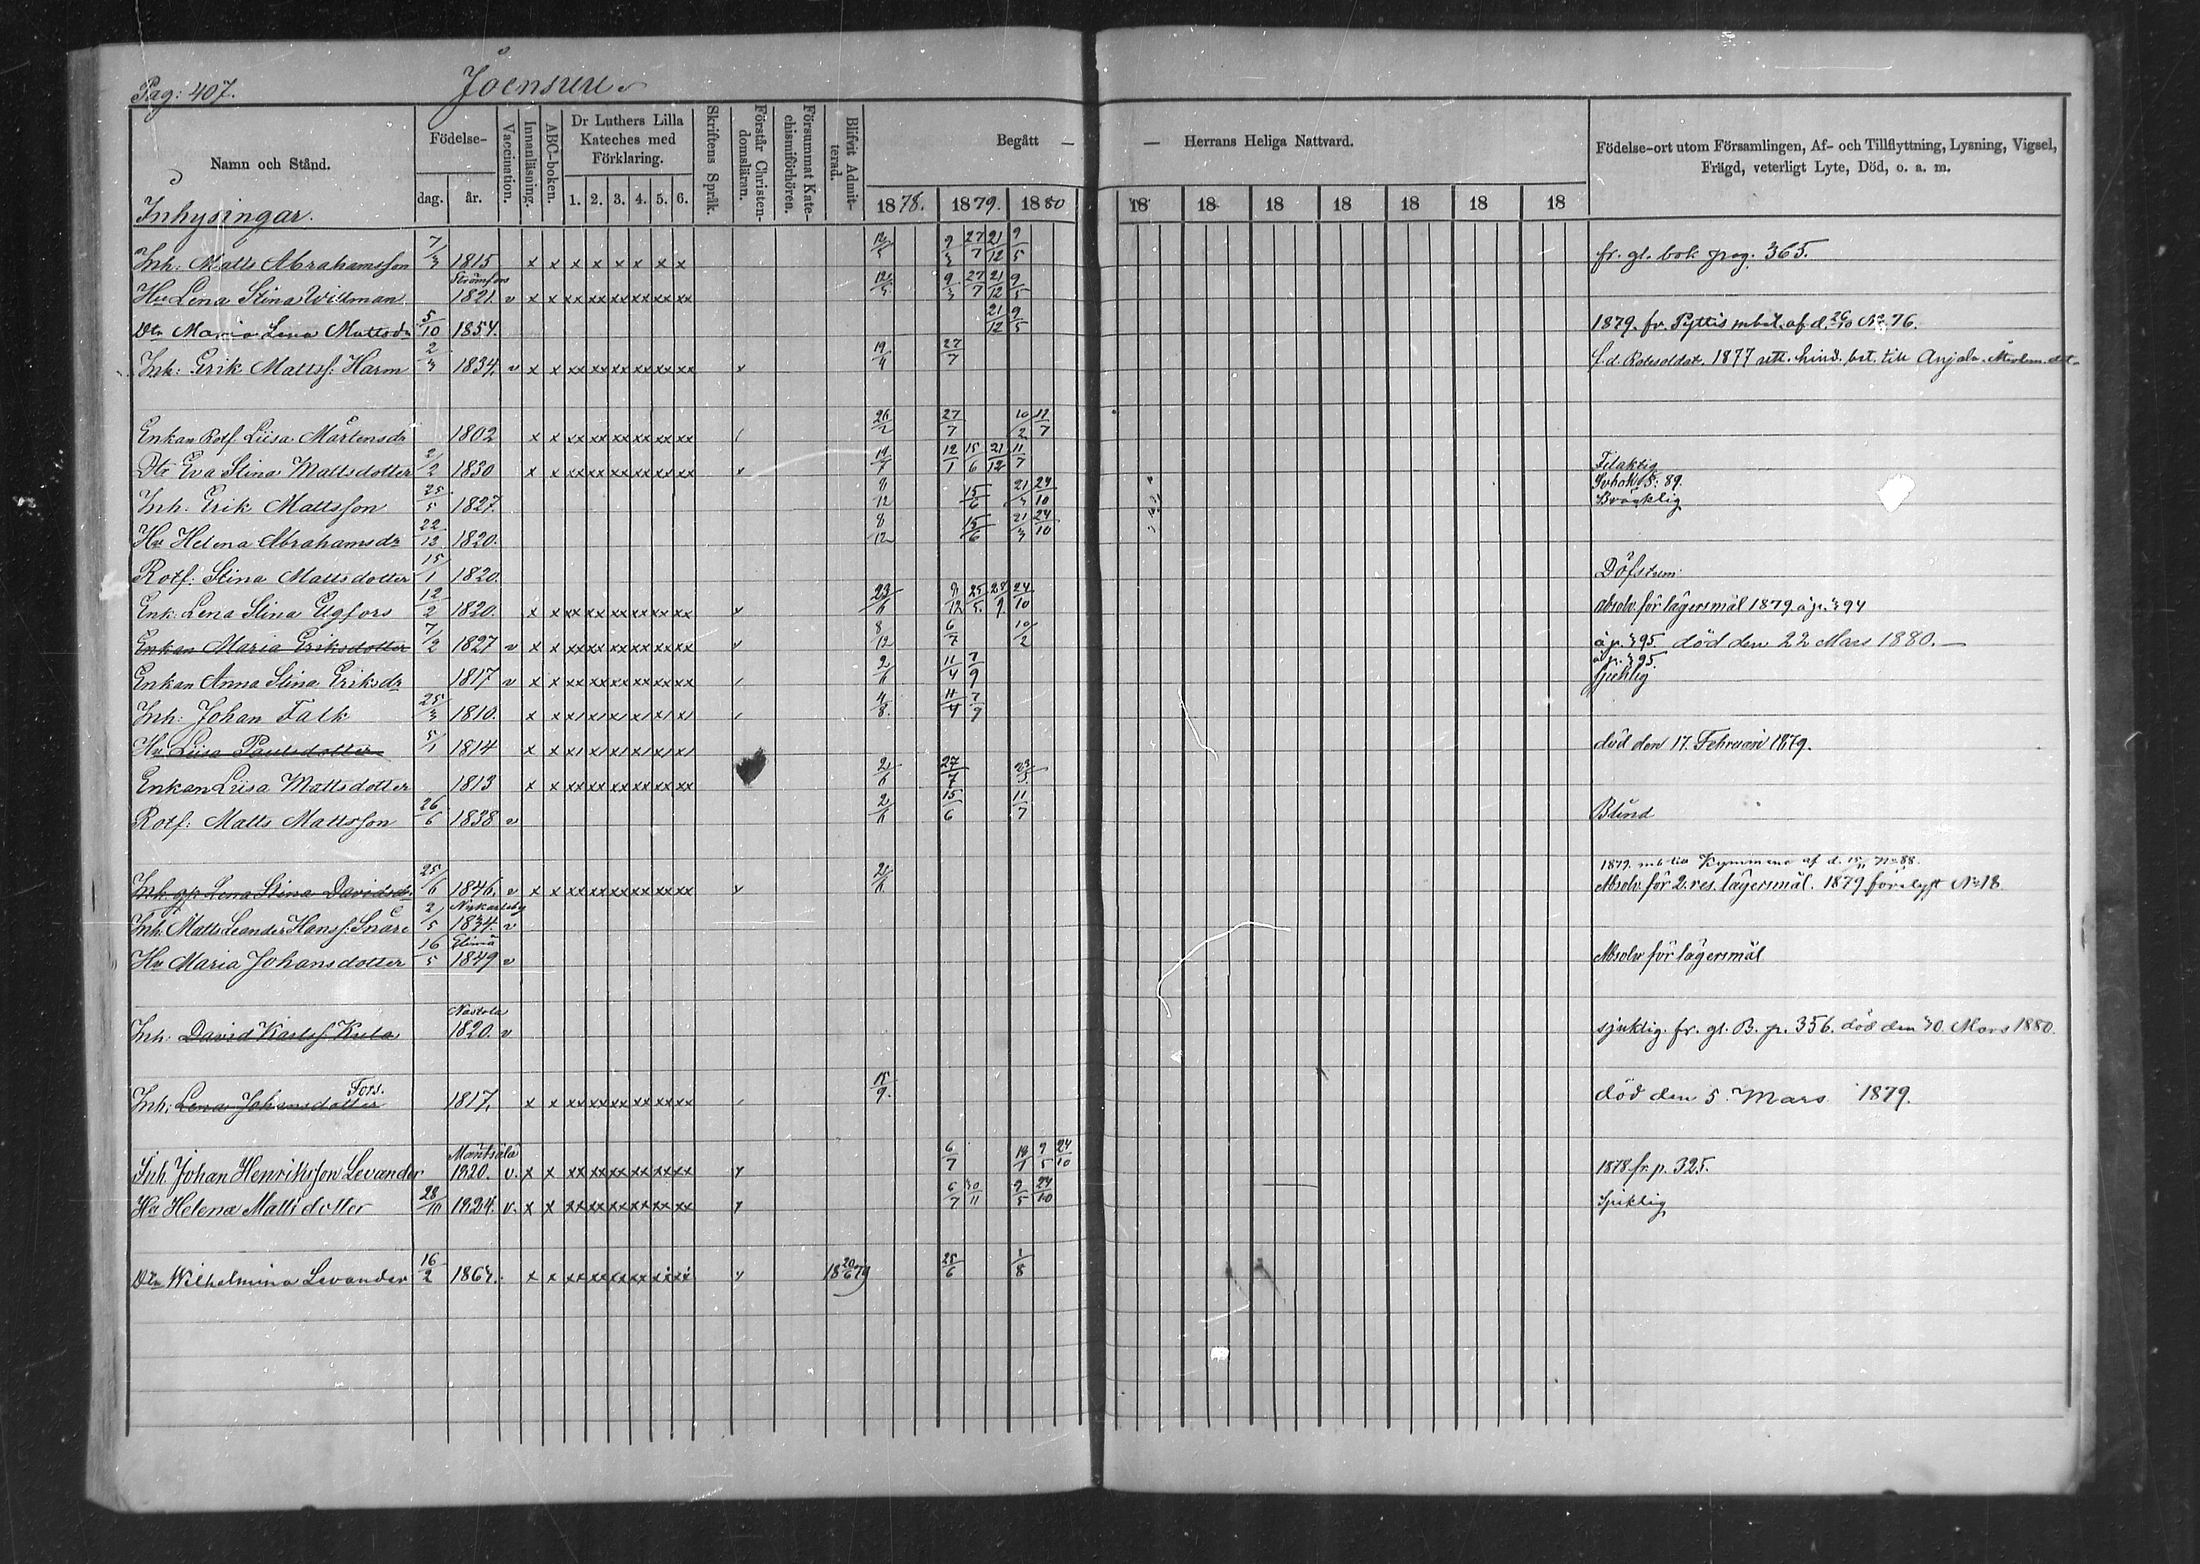 Pag: 407. Joensuu.
Namn och Stånd. Födelse- dag. år. Vaccination. Innanläsning. ABC-boken. Dr Luthers Lilla Kateches med Förklaring. 1. 2. 3. 4. 5. 6. Skriftens Språk. Förstår Christendomsläran. Försummat Katechismiförhören. Blifvit Admitterad. Begått — — Herrans Heliga Nattvard. Födelse-ort utom Församlingen, Af- och Tillflyttning, Lysning, Vigsel, Frägd, veterligt Lyte, Död, o. a. m.
1878. 1879. 1880 18 18 18 18 18 18 18
Inhysingar.
Inh: Matts Abrahamsson 7/3 1815 x x x x x x x x 9/3 27/7 21/12 9/5 fr. gl. bok pag. 365.
Strömfors
Hu Lena Stina Widman 1821. v x x xx xx xx xx xx xx 9/3 27/7 21/12 9/5
Dtr Maria Lena Mattsdr 5/10 1854. 21/12 9/5 1879. fr. Pyttis mbet. af d. 26/10 No 76.
Inh: Erik Mattsf. Harm 2/3 1834. v x x xx xx xx xx xx xx x 19/4 27/7 f.d. Rotesoldat. 1877 att. hind. bet. till Anjala
Enkan Rotf Liisa Mårtensdr 1802 x x xx xx xx xx xx xx 26/2 27/7 10/2 11/7
Dtr Eva Stina Mattsdotter 2/2 1830 x x xx xx xx xx xx xx x 12/1 15/6 21/12 11/7 Felaktig
Inh. Erik Mattsson 25/5 1827. 8/12 15/6 21/3 24/10 89. Bräcklig
Hu Helena Abrahamsdr 22/12 1820. 8/12 15/6 21/3 24/10
Rotf: Stina Mattsdotter 15/1 1820. Döfstum
Enk: Lena Stina Ugfors 12/2 1820. x x xx xx xx xx xx xx x 23/6 9/12 25/5 28/9 24/10 absolv. för lägersmål 1879 å p. 394
Enkan Maria Eriksdotter 7/2 1827 v x x xx xx xx xx xx xx x 8/12 6/7 10/2 å p. 395 död den 22 Mars 1880. —
Enkan Anna Stina Eriksdr 1817 v x x xx xx xx xx xx xx 2/6 11/4 7/9 å p. 395. sjuklig
Inh: Johan Falk 25/3 1810. x x 4/8. 11/4 7/9
Hu Liisa Paulsdotter 5/1 1814 x x död den 17. Februari 1879.
Enkan Liisa Mattsdotter 1813 x x xx xx xx xx xx xx 2/6 27/7 23/5
Rotf: Matts Mattsson 26/6 1838 v 2/6 15/6 11/7 Blind
1879. mb till Kymmene af d. 15/11 No 88.
Inh. Lena Stina Davidsdr 25/6 1846. v x x xx xx xx xx xx xx x 2/6 Absolv. för 2. res. lägersmål. 1879 No 18
Nykarleby
Inh. Matts Leander Hansf. Snåre 2/5 1834. v
Elimä
Hu Maria Johansdotter 16/5 1849 v Absolv för lägersmål
Nastola
Inh: David Karlsf Kula 1820. v sjuklig. fr. gl. B. p. 356. död den 30 Mars 1880.
Fors.
Inh: Lena Johansdotter 1817. x x xx xx xx xx xx xx 15/9. död den 5. Mars 1879.
Mäntsälä
Inh Johan Henriksson Levander 1820. v. x x xx xx xx xx xx xx x 6/7 18/1 9/5 24/10 1878 fr. p. 325.
Hu Helena Mattsdotter 28/10 1824. v. x x xx xx xx xx xx xx x 6/7 30/11 9/5 24/10 Sjuklig
Dtr Wilhelmina Levander 16/2 1864. x x xx xx xx xx xx xx x 18 20/6 79 25/6 1/8